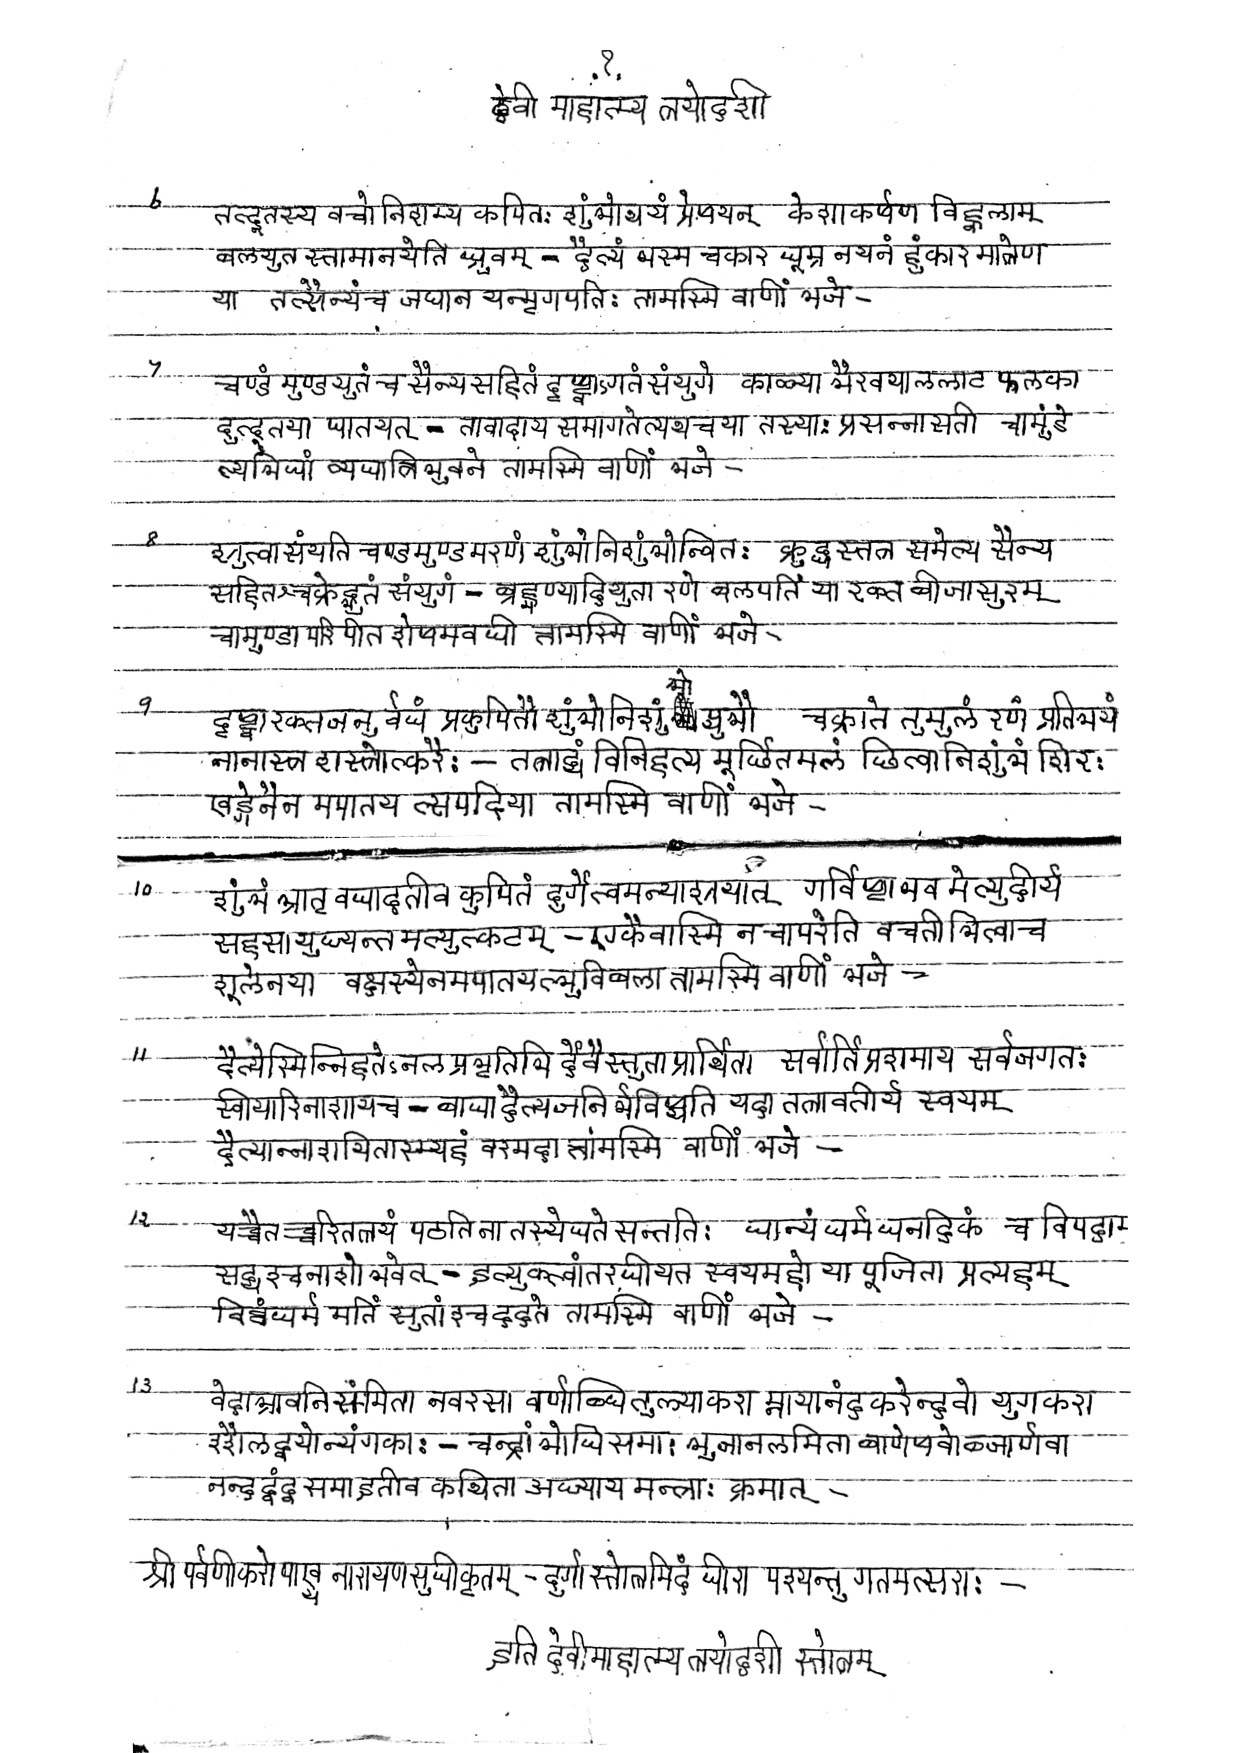 .१.
देवी माहात्म्य त्रयोदशी
6 तत्दूतस्य वचो निशम्य कपितः शुंभोथयं प्रेषयन् केशाकर्षण विह्वलाम्
बलयुत स्तामानयेति ध्रुवम् - दैत्यं भस्म चकार धूम्र नयनं हुंकार मात्रेण
या तत्सैन्यंच जघान यन्मृगपतिः तामस्मि वाणीं भजे -
7 चण्डं मुण्डयुतं च सैन्यसहितं दृष्ट्वाऽगतं संयुगे काळ्या भैरवयाललाट फलका
दुत्द्भूतया घातयत् - तावादाय समागतेत्यथचया तस्याः प्रसन्नासती चामुंडे
त्यभिधां व्यधात्रिभुवने तामस्मि वाणीं भजे -
8 श्रुत्वासंयति चण्डमुण्डमरणं शुंभोनिशुंभोन्वितः क्रुद्धस्तत्र समेत्य सैन्य
सहितश्चक्रेद्भुतं संयुगं - ब्रह्मण्यादियुता रणे बलपतिं या रक्त बीजासुरम्
चामुण्डा परिपीत शेषमवधी त्तामस्मि वाणीं भजे -
9 दृष्ट्वा रक्तजनुर्वधं प्रकुपितौ शुंभोनिशुंभो प्युभौ चक्राते तुमुलं रणं प्रतिभयं
नानास्त्र शस्त्रोत्करैः - तत्राद्यं विनिहत्य मूर्छितमलं छित्वानिशुंभं शिरः
खड्गेनैन मपातय त्सपदिया तामस्मि वाणीं भजे -
10 शुंभं भ्रातृ वधादतीव कुपितं दुर्गेत्वमन्याश्रयात् गर्विष्ठाभव मेत्युदीर्य
सहसा युध्यन्तमत्युत्कटम् - एकैवास्मि न चापरेति वचती भित्वाच
शूलेनया वक्षस्येनमपातयत्भुविबला त्तामस्मि वाणीं भजे -
11 दैत्येस्मिन्निहतेऽनल प्रभृतिभि र्देवैस्तुता प्रार्थिता सर्वार्तिप्रशमाय सर्वजगतः
स्वीयारिनाशायच - बाधादैत्यजनिर्भविष्यति यदा तत्रावतीर्य स्वयम्
दैत्यान्नाशयितास्म्यहं वरमदा त्तांमस्मि वाणीं भजे -
12 यश्चैत च्चरितत्रयं पठतिना तस्येधते सन्ततिः धान्यं धर्मधनदिकं च विपदाम
सद्यश्चनाशो भवेत् - इत्युक्त्वांतरधीयत स्वयमहो या पूजिता प्रत्यहम्
वित्तंधर्म मतिं सुतांश्चददते तामस्मि वाणीं भजे -
13 वेदाभ्रावनि संमिता नवरसा वर्णाब्धितुल्याकरा म्नायानंदकरेन्दवो युगकरा
श्शैलद्वयोन्यंगकाः - चन्द्रांभोधिसमाः भुजानलमिता बाणेषवोब्जार्णवा
नन्दद्वंद्व समाइतीव कथिता अध्याय मन्त्राः क्रमात् -
श्री पर्वणीकरोपाख्य नारायणसुधीकृतम् - दुर्गास्तोत्रमिदं धीरा पश्यन्तु गतमत्सराः -
इति देवीमाहात्म्य त्रयोदशी स्तोत्रम्